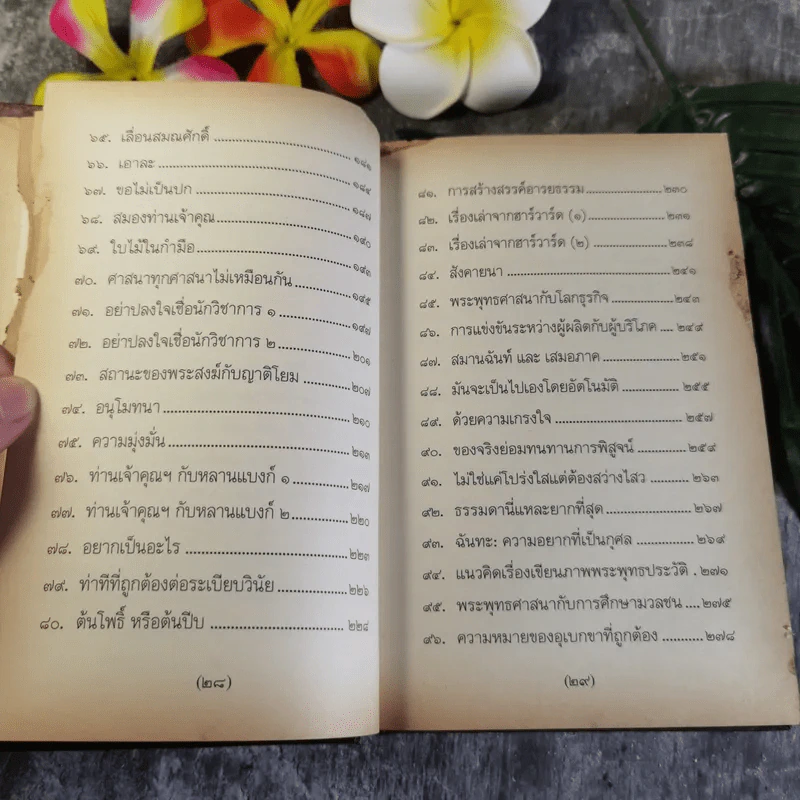 ๖๕. เลื่อนสมณศักดิ์ ........................ ๑๘๑
๖๖. เอาละ ........................ ๑๘๔
๖๗. ขอไม่เป็นปก ........................ ๑๘๗
๖๘. สมองท่านเจ้าคุณ ........................ ๑๙๐
๖๙. ใบไม้ในกำมือ ........................ ๑๙๓
๗๐. ศาสนาทุกศาสนาไม่เหมือนกัน ........................ ๑๙๕
๗๑. อย่าปลงใจเชื่อนักวิชาการ ๑ ........................ ๑๙๗
๗๒. อย่าปลงใจเชื่อนักวิชาการ ๒ ........................ ๒๐๑
๗๓. สถานะของพระสงฆ์กับญาติโยม ........................ ๒๐๗
๗๔. อนุโมทนา ........................ ๒๑๐
๗๕. ความมุ่งมั่น ........................ ๒๑๓
๗๖. ท่านเจ้าคุณฯ กับหลานแบงก์ ๑ ........................ ๒๑๗
๗๗. ท่านเจ้าคุณฯ กับหลานแบงก์ ๒ ........................ ๒๒๐
๗๘. อยากเป็นอะไร ........................ ๒๒๓
๗๙. ท่าทีที่ถูกต้องต่อระเบียบวินัย ........................ ๒๒๖
๘๐. ต้นโพธิ์ หรือต้นปีบ ........................ ๒๒๘
(๒๘)
๘๑. การสร้างสรรค์อารยธรรม ........................ ๒๓๐
๘๒. เรื่องเล่าจากฮาร์วาร์ด (๑) ........................ ๒๓๑
๘๓. เรื่องเล่าจากฮาร์วาร์ด (๒) ........................ ๒๓๘
๘๔. สังคายนา ........................ ๒๔๑
๘๕. พระพุทธศาสนากับโลกธุรกิจ ........................ ๒๔๓
๘๖. การแข่งขันระหว่างผู้ผลิตกับผู้บริโภค .... ๒๔๙
๘๗. สมานฉันท์ และ เสมอภาค ........................ ๒๕๑
๘๘. มันจะเป็นไปเองโดยอัตโนมัติ ........................ ๒๕๕
๘๙. ด้วยความเกรงใจ ........................ ๒๕๗
๙๐. ของจริงย่อมทนทานการพิสูจน์ ........................ ๒๕๙
๙๑. ไม่ใช่แค่โปร่งใสแต่ต้องสว่างไสว ........................ ๒๖๓
๙๒. ธรรมดานี่แหละยากที่สุด ........................ ๒๖๗
๙๓. ฉันทะ: ความอยากที่เป็นกุศล ........................ ๒๖๙
๙๔. แนวคิดเรื่องเขียนภาพพระพุทธประวัติ . ๒๗๑
๙๕. พระพุทธศาสนากับการศึกษามวลชน .... ๒๗๕
๙๖. ความหมายของอุเบกขาที่ถูกต้อง ........... ๒๗๘
(๒๙)